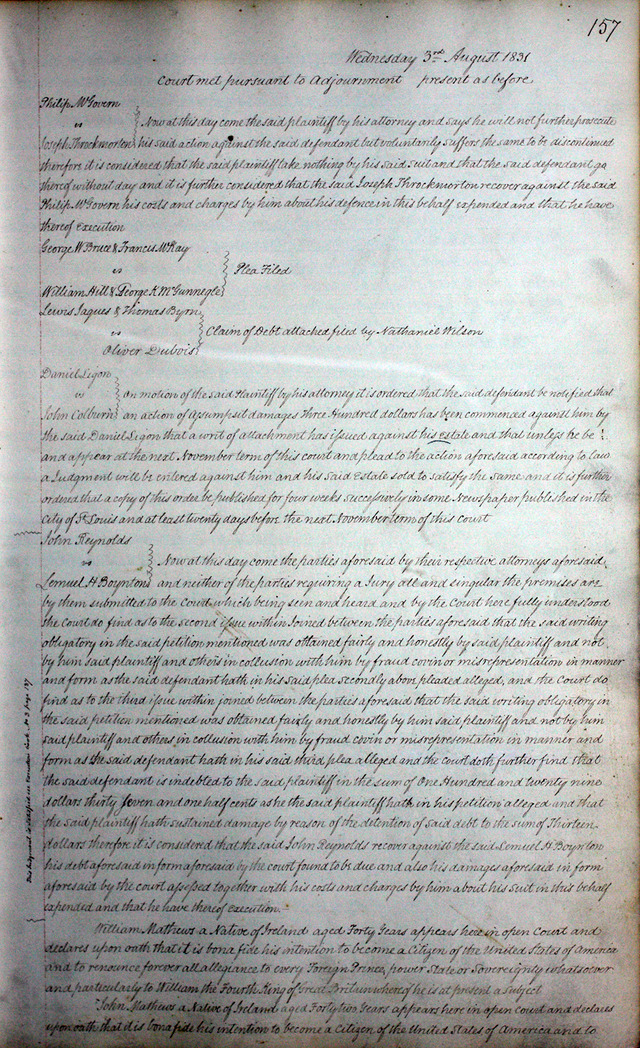 157
Wednesday 3rd August 1831
Court met pursuant to Adjournment present as before
Philip McGovern
vs
Now at this day come the said plaintiff by his attorney and says he will not further prosecute
Joseph Throckmorton his said action against the said defendant but voluntarily suffers the same to be discontinued
therefore it is considered that the said plaintiff take nothing by his said suit and that the said defendant go
thereof without day and it is further considered that the said Joseph Throckmorton recover against the said
Philip McGovern his costs and charges by him about his defence in this behalf expended and that he have
thereof execution
George W Bruce & Francis McKay
vs
Plea Filed
William Hill & George K McGunnegle
Lewis Jaques & Thomas Byrn
vs
Claim of Debt attached filed by Nathaniel Wilson
Oliver Dubois
Daniel Ligon
vs
on motion of the said Plaintiff by his attorney it is ordered that the said defendant be notified that
John Colburn an action of assumpsit damages Three Hundred dollars has been commenced against him by
the said Daniel Ligon that a writ of attachment has issued against his estate and that unless he be
and appear at the next November term of this court and plead to the action aforesaid according to law
a Judgment will be entered against him and his said Estate sold to satisfy the same and it is further
ordered that a copy of this order be published for four weeks successively in some Newspaper published in the
City of St Louis and at least twenty days before the next November term of this court
John Reynolds
vs
Now at this day come the parties aforesaid by their respective attorneys aforesaid
Lemuel H Boynton and neither of the parties requiring a Jury all and singular the premises are
by them submitted to the Court which being seen and heard and by the Court here fully understood
the Court do find as to the second issue within Joined between the parties aforesaid that the said writing
obligatory in the said petition mentioned was obtained fairly and honestly by said plaintiff and not
by him said plaintiff and others in collusion with him by fraud covin or misrepresentation in manner
and form as the said defendant hath in his said plea secondly above pleaded alleged, and the Court do
find as to the third issue within joined between the parties aforesaid that the said writing obligatory in
the said petition mentioned was obtained fairly and honestly by him said plaintiff and not by him
said plaintiff and others in collusion with him by fraud covin or misrepresentation in manner and
form as the said defendant hath in his said third plea alleged and the court doth further find that
the said defendant is indebted to the said plaintiff in the sum of One Hundred and twenty nine
dollars thirty seven and one half cent as he the said plaintiff hath in his petition alleged and that
the said plaintiff hath sustained damage by reason of the detention of said debt to the sum of Thirteen
dollars therefore it is considered that the said John Reynolds recover against the said Lemuel H Boynton
his debt aforesaid in form aforesaid by the court found to be due and also his damages aforesaid in form
aforesaid by the court assessed together with his costs and charges by him about his suit in this behalf
expended and that he have thereof execution.
William Mathews a Native of Ireland aged Forty Years appears here in open Court and
declares upon oath that it is bona fide his intention to become a Citizen of the United States of America
and to renounce forever all allegiance to every Foreign Prince, power State or Sovereignty whatsoever
and particularly to William the Fourth King of Great Britain whereof he is at present a Subject
John Mathews a Native of Ireland aged Forty two Years appears here in open Court and declares
upon oath that it is bona fide his intention to become a Citizen of the United States of America and to